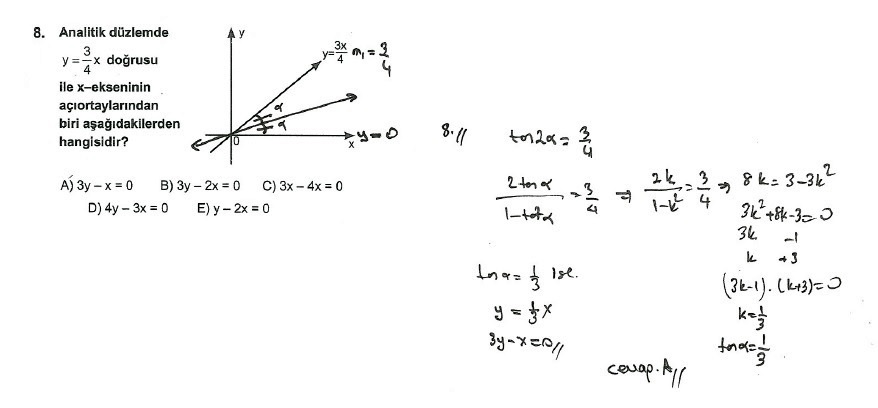 8. Analitik düzlemde
y = 3/4 x doğrusu
ile x–ekseninin
açıortaylarından
biri aşağıdakilerden
hangisidir?
y
y=3x/4 m₁ = 3/4
α
α
0
x
y=0
A) 3y – x = 0 B) 3y – 2x = 0 C) 3x – 4x = 0
D) 4y – 3x = 0 E) y – 2x = 0
8.//
tan2α = 3/4
2tanα/1–tan²α = 3/4 ⇒ 2k/1–k² = 3/4 ⇒ 8k = 3–3k²
3k²+8k–3=0
3k –1
k +3
(3k–1).(k+3)=0
k=1/3
tanα=1/3
tanα = 1/3 ise.
y = 1/3 x
3y–x=0//
cevap.A//